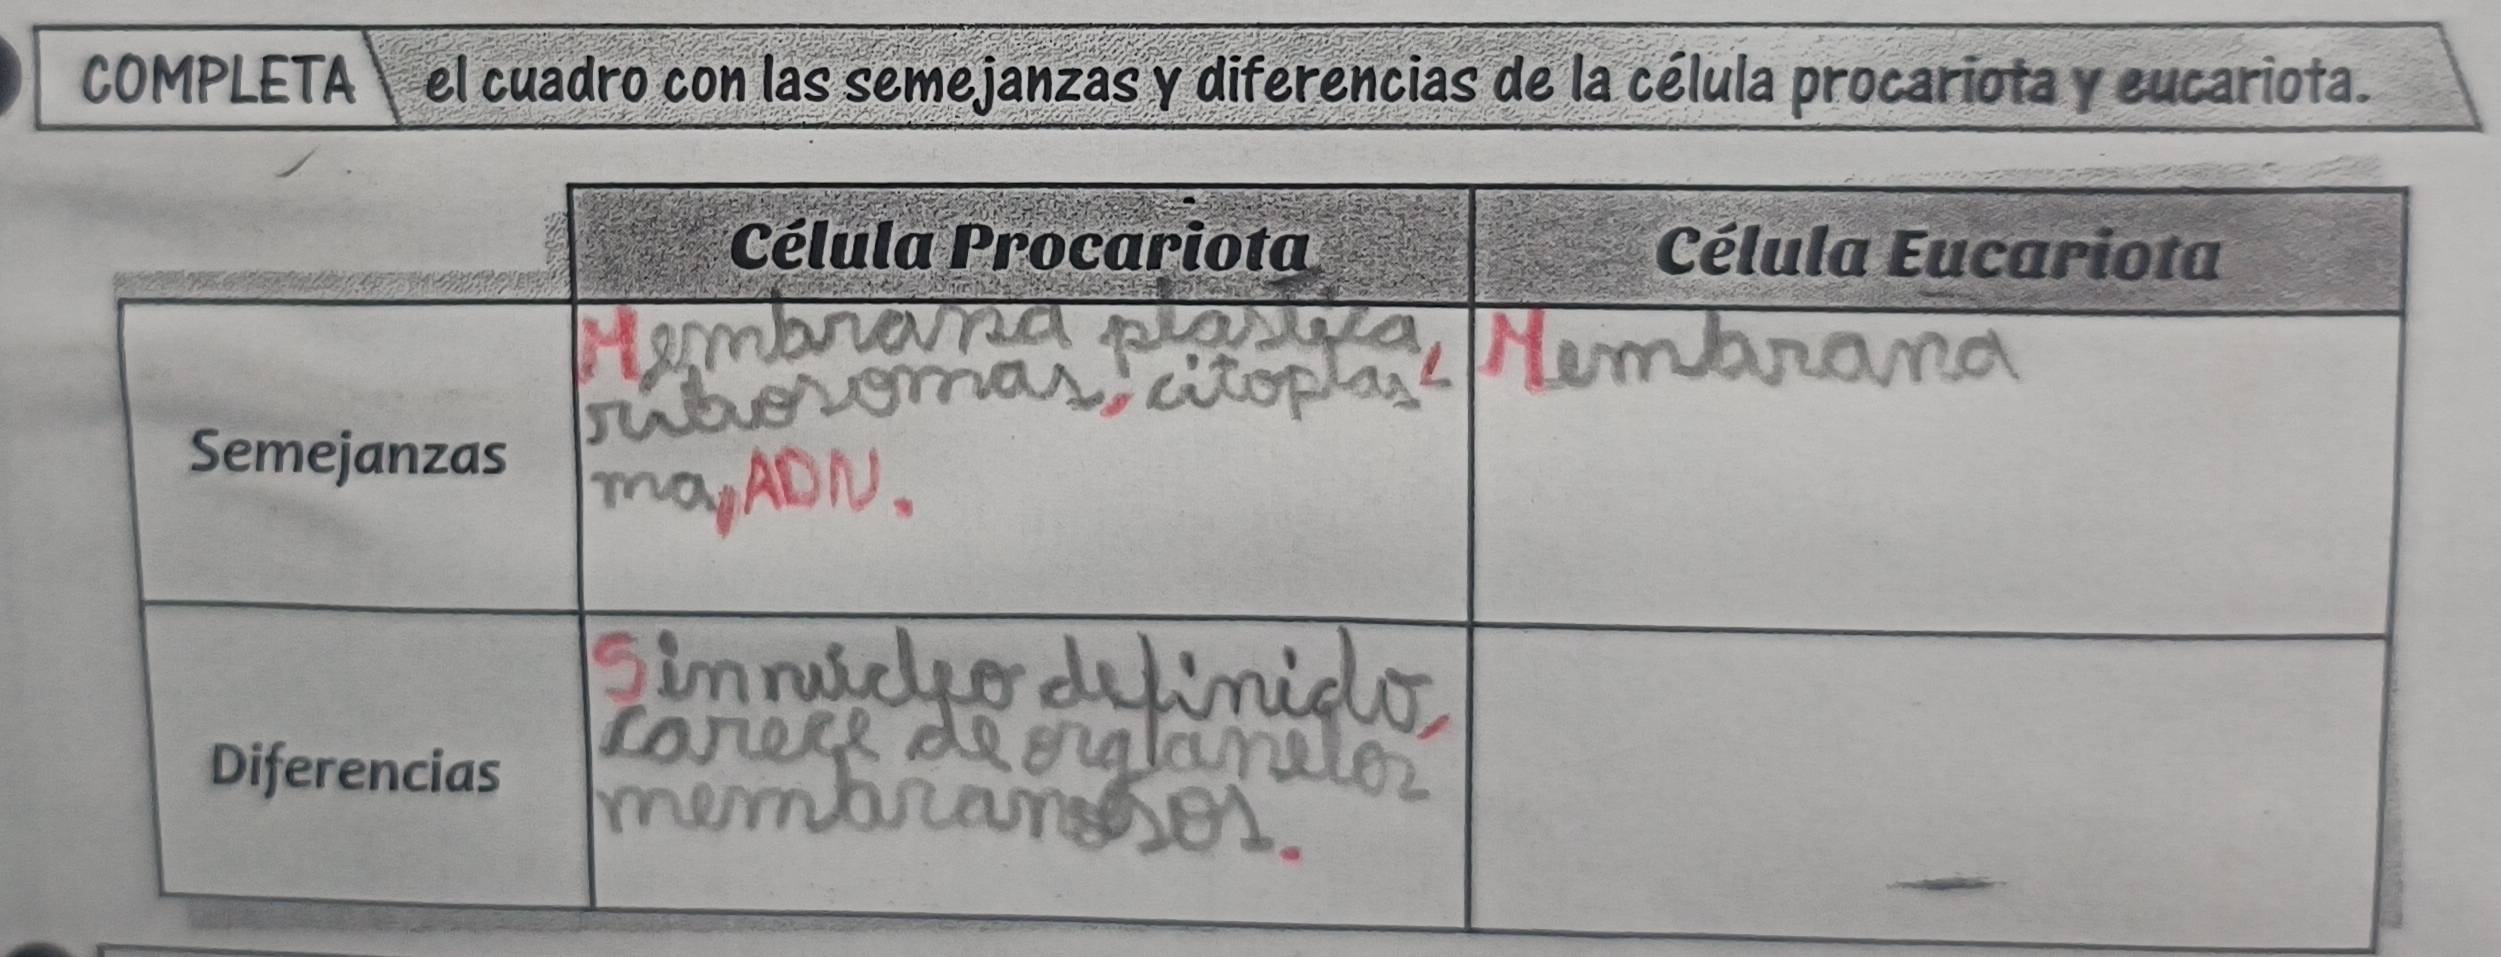 COMPLETA el cuadro con las semejanzas y diferencias de la célula procariota y eucariota.
Célula Procariota
Célula Eucariota
Semejanzas
Membrana plastica,
ribosomas, citoplas
ma, ADN.
Membrana
Diferencias
Sin núcleo definido,
carece de organelos
membranosos.